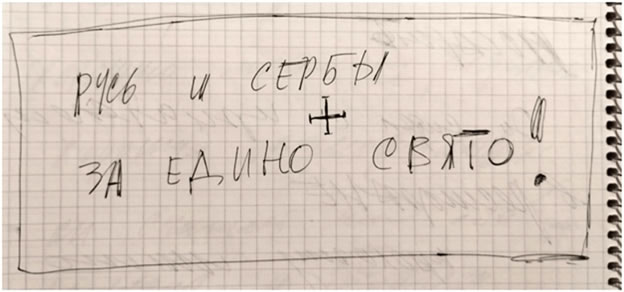 РУСЬ И СЕРБЫ
ЗА ЕДИНО СВЯТО!